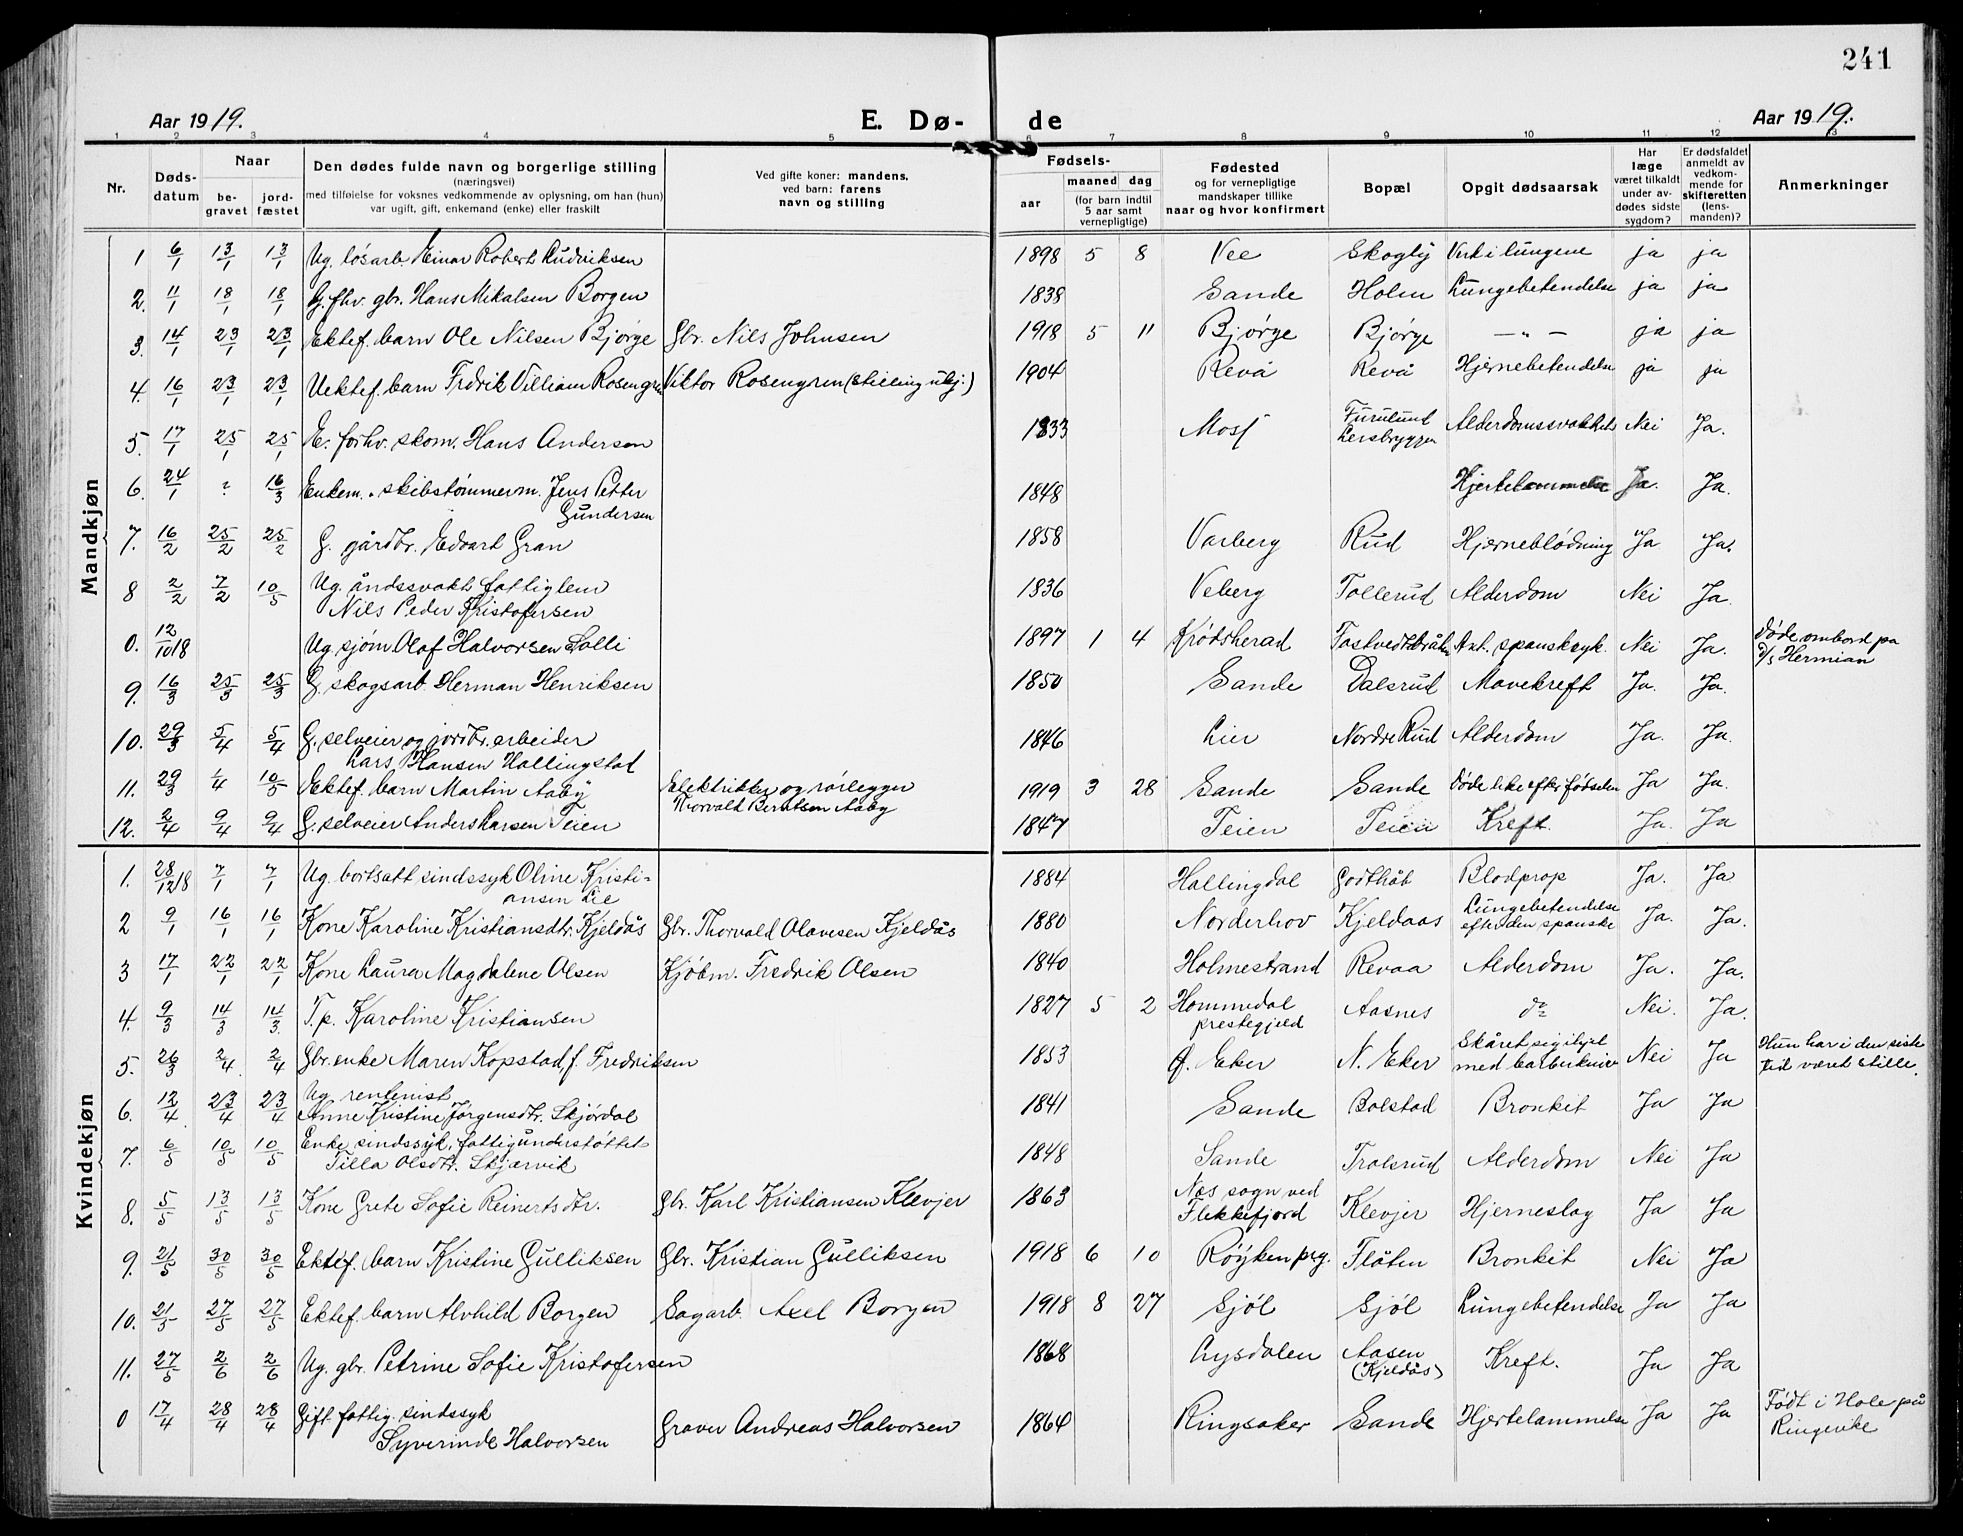 241
Aar 1919.
E. Dø-
de
Aar 1919.
1 2 3 4 5 6 7 8 9 10 11 12 13
Nr.
Døds-
datum
Naar
be-
gravet
jord-
fæstet
Den dødes fulde navn og borgerlige stilling
(næringsvei)
med tilføielse for voksnes vedkommende av oplysning, om han (hun)
var ugift, gift, enkemand (enke) eller fraskilt
Ved gifte koner: mandens,
ved barn: farens
navn og stilling
Fødsels-
aar
maaned dag
(for barn indtil
5 aar samt
vernepligtige)
Fødested
og for vernepligtige
mandskaper tillike
naar og hvor konfirmert
Bopæl
Opgit dødsaarsak
Har
læge
været tilkaldt
under av-
dødes sidste
sygdom?
Er dødsfaldet
anmeldt av
vedkom-
mende for
skifteretten
(lens-
manden)?
Anmerkninger
Mandkjøn
1 6/1 13/1 13/1 Ug. løsarb. Einar Robert Rudriksen 1898 5 8 Vee Skogly Verk i lungene ja ja
2. 11/1 18/1 18/1 G. fhv. gbr. Hans Mikalsen Borgen 1838 Sande Holm Lungebetendelse ja ja
3. 14/1 23/1 23/1 Ektef. barn Ole Nilsen Bjørge Gbr. Nils Johnsen 1918 5 11 Bjørge Bjørge —„— ja ja
4. 16/1 23/1 23/1 Uektef. barn Fredrik Villiam Rosengren Viktor Rosengren (stilling ukj.) 1904 Revå Revå Hjernebetendelse ja ja
5. 17/1 25/1 25/1 E. forhv. skom. Hans Andersen 1833 Moss Furulund
Lersbryggen Alderdomssvakhet Nei Ja.
6. 24/1 ? 16/3 Enkem. skibstømmerm. Jens Petter
Gundersen 1848 Hjertelammelse Ja. Ja.
7. 16/2 25/2 25/2 G. gårdbr. Edvart Gran 1858 Varberg Rud Hjerneblødning Ja Ja.
8 2/2 7/2 10/5 Ug. åndssvakt fattiglem
Nils Peder Kristofersen 1836 Veberg Tollerud Alderdom Nei Ja.
0. 12/10 18 Ug. sjøm. Olaf Halvorsen Solli 1897 1 4 Krødsherad Tostvedtbråten Ant. spansksyk. Nei Ja. Døde ombord pa
D/s Hermian
9. 16/3 25/3 25/3 G. skogsarb. Herman Henriksen 1850 Sande Dalsrud Mavekreft Ja. Ja.
10. 29/3 5/4 5/4 G. selveier og jordbr. arbeider
Lars Hansen Hallingstad 1846 Lier Nordre Rud Alderdom Ja. Ja.
11. 29/3 1/4 10/5 Ektef. barn Martin Aaby Elektriker og rørlegger
Thorvald Berntsen Aaby 1919 3 28 Sande Sande Døde like efter fødselen Ja Ja.
12. 2/4 9/4 9/4 G. selveier Anders Larsen Teien 1847 Teien Teien Kreft. Ja. Ja
Kvindekjøn
1. 28/12 18 7/1 7/1 Ug. bortsatt sindssyk Oline Kristi-
ansen Lie 1884 Hallingdal Godthåb Blodprop Ja. Ja
2 9/1 16/1 16/1 Kone Karoline Kristiansdtr. Kjeldås Gbr. Thorvald Olavesen Kjeldås 1880 Norderhov Kjeldaas Lungebetendelse
efter den spanske Ja. Ja.
3 17/1 22/1 22/1 Kone Laura Magdalene Olsen Kjøbm. Fredrik Olsen 1840 Holmestrand Revaa Alderdom Ja. Ja.
4. 9/3 14/3 14/3 T.p. Karoline Kristiansen 1827 5 2 Hommedal
prestegjeld Aasnes do Nei. Ja.
5. 26/3 2/4 2/4 Gbr. enke Maren Kopstad, f. Fredriksen 1853 Ø. Eker N. Eker Skåret sig ihjel
med barberkniv Nei Ja Hun har i den siste
tid været stille.
6. 12/4 23/4 23/4 Ug. rentenist
Anne Kristine Jørgensdtr. Skjørdal 1841 Sande Bolstad Bronkit Ja Ja
7. 6/5 10/5 10/5 Enke, sindssyk, fattigunderstøttet
Tilla Olsdtr. Skjærvik 1848 Sande Trolsrud Alderdom Nei Ja
8. 5/5 13/5 13/5 Kone Grete Sofie Reinertsdtr. Gbr. Karl Kristiansen Klevjer 1863 Nes sogn ved
Flekkefjord Klevjer Hjerneslag Ja Ja
9. 21/5 30/5 30/5 Ektef. barn Kristine Gulliksen Gbr. Kristian Gulliksen 1918 6 10 Røyken prg. Flåten Bronkit Nei Ja
10. 21/5 27/5 27/5 Ektef. barn Alvhild Borgen Sagarb. Axel Borgen 1918 8 27 Sjøl Sjøl Lungebetendelse Ja Ja
11. 27/5 2/6 2/6 Ug. gbr. Petrine Sofie Kristofersen 1868 Lysdalen Aasen
(Kjeldås) Kreft. Ja Ja
0 17/4 28/4 28/4 Gift fattig. sindssyk
Syverinde Halvorsen Graver Andreas Halvorsen 1864 Ringsaker Sande Hjertelammelse Ja Ja Født i Hole på
Ringerike